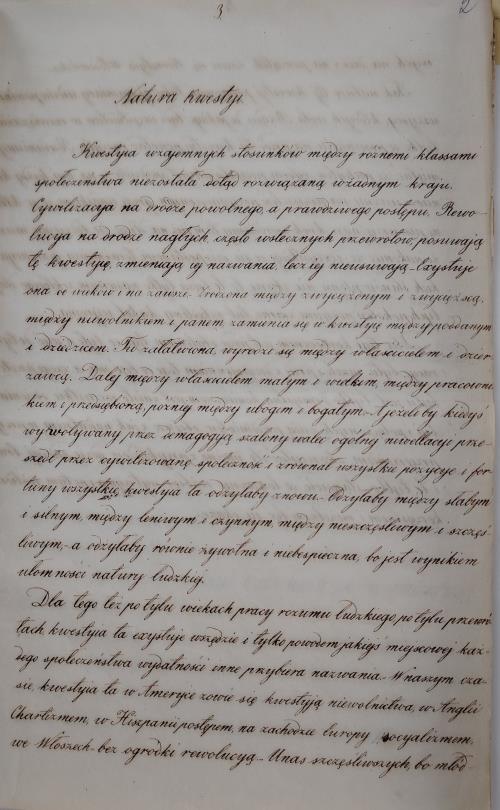 3
2
Natura kwestyi.
Kwestyia wzajemnych stosunków między różnemi klassami
społeczeństwa niezostała dotąd rozwiązaną w żadnym kraju.
Cywilizacya na drodze powolnego, a prawdziwego postępu, Rewo-
lucya na drodze nagłych, często wstecznych przewrotów, posuwają
tę kwestyię, zmieniają jej nazwania, lecz jej nieusuwają. Exystuje
ona od wieków i na zawsze. Zrodzona między zwyciężonym i zwycięzcą,
między niewolnikiem i panem zamienia się w kwestyię między poddanym
i dziedzicem. Tu załatwiona, wyrodzi się między właścicielem i dzier-
żawcą. Dalej między właścicielem małym i wielkim, między pracowni-
kiem i przedsiębiorcą, później między ubogim i bogatym. A jeżeliby kiedyś
wywoływany przez demagogyją szalony walec ogólnej niwellacyi prze-
szedł przez cywilizowaną społeczność i zrównał wszystkie pozycye i for-
tuny wszystkie, kwestyia ta odżyłaby znowu. Odżyłaby między słabym
i silnym, między leniwym i czynnym, między nieszczęśliwym i szczęś-
liwym, a odżyłaby równie żywotna i niebespieczna, bo jest wynikiem
ułomności natury ludzkiej.
Dla tego też po tylu wiekach pracy rozumu ludzkiego, po tylu przewro-
tach, kwestyia ta exystuje wszędzie i tylko powodem jakiejś miejscowej każ-
dego społeczeństwa wydatności inne przybiera nazwania. W naszym cza-
sie, kwestyia ta w Ameryce zowie się kwestyją niewolnictwa, w Anglii
Chartizmem, w Hiszpanii postępem, na zachodzie Europy socyalizmem,
we Włoszech bez ogródki rewolucyą. U nas szczęśliwszych, bo młod-